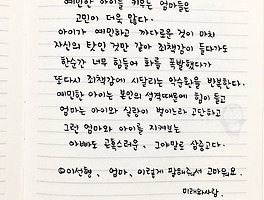 예민한 아이를 키우는 엄마들은
고민이 더욱 많다.
아이가 예민하고 까다로운 것이 마치
자신의 탓인 것만 같아 죄책감이 들다가도
한순간 너무 힘들어 화를 폭발했다가
또다시 죄책감에 시달리는 악순환을 반복한다.
예민한 아이는 본인의 성격때문에 힘이 들고
엄마는 아이와 실랑이 벌이느라 고단하고
그런 엄마와 아이를 지켜보는
아빠도 곤혹스러운, 그야말로 삼중고다.
이선형, 엄마, 이렇게 말해줘서 고마워요.
미래와사람.